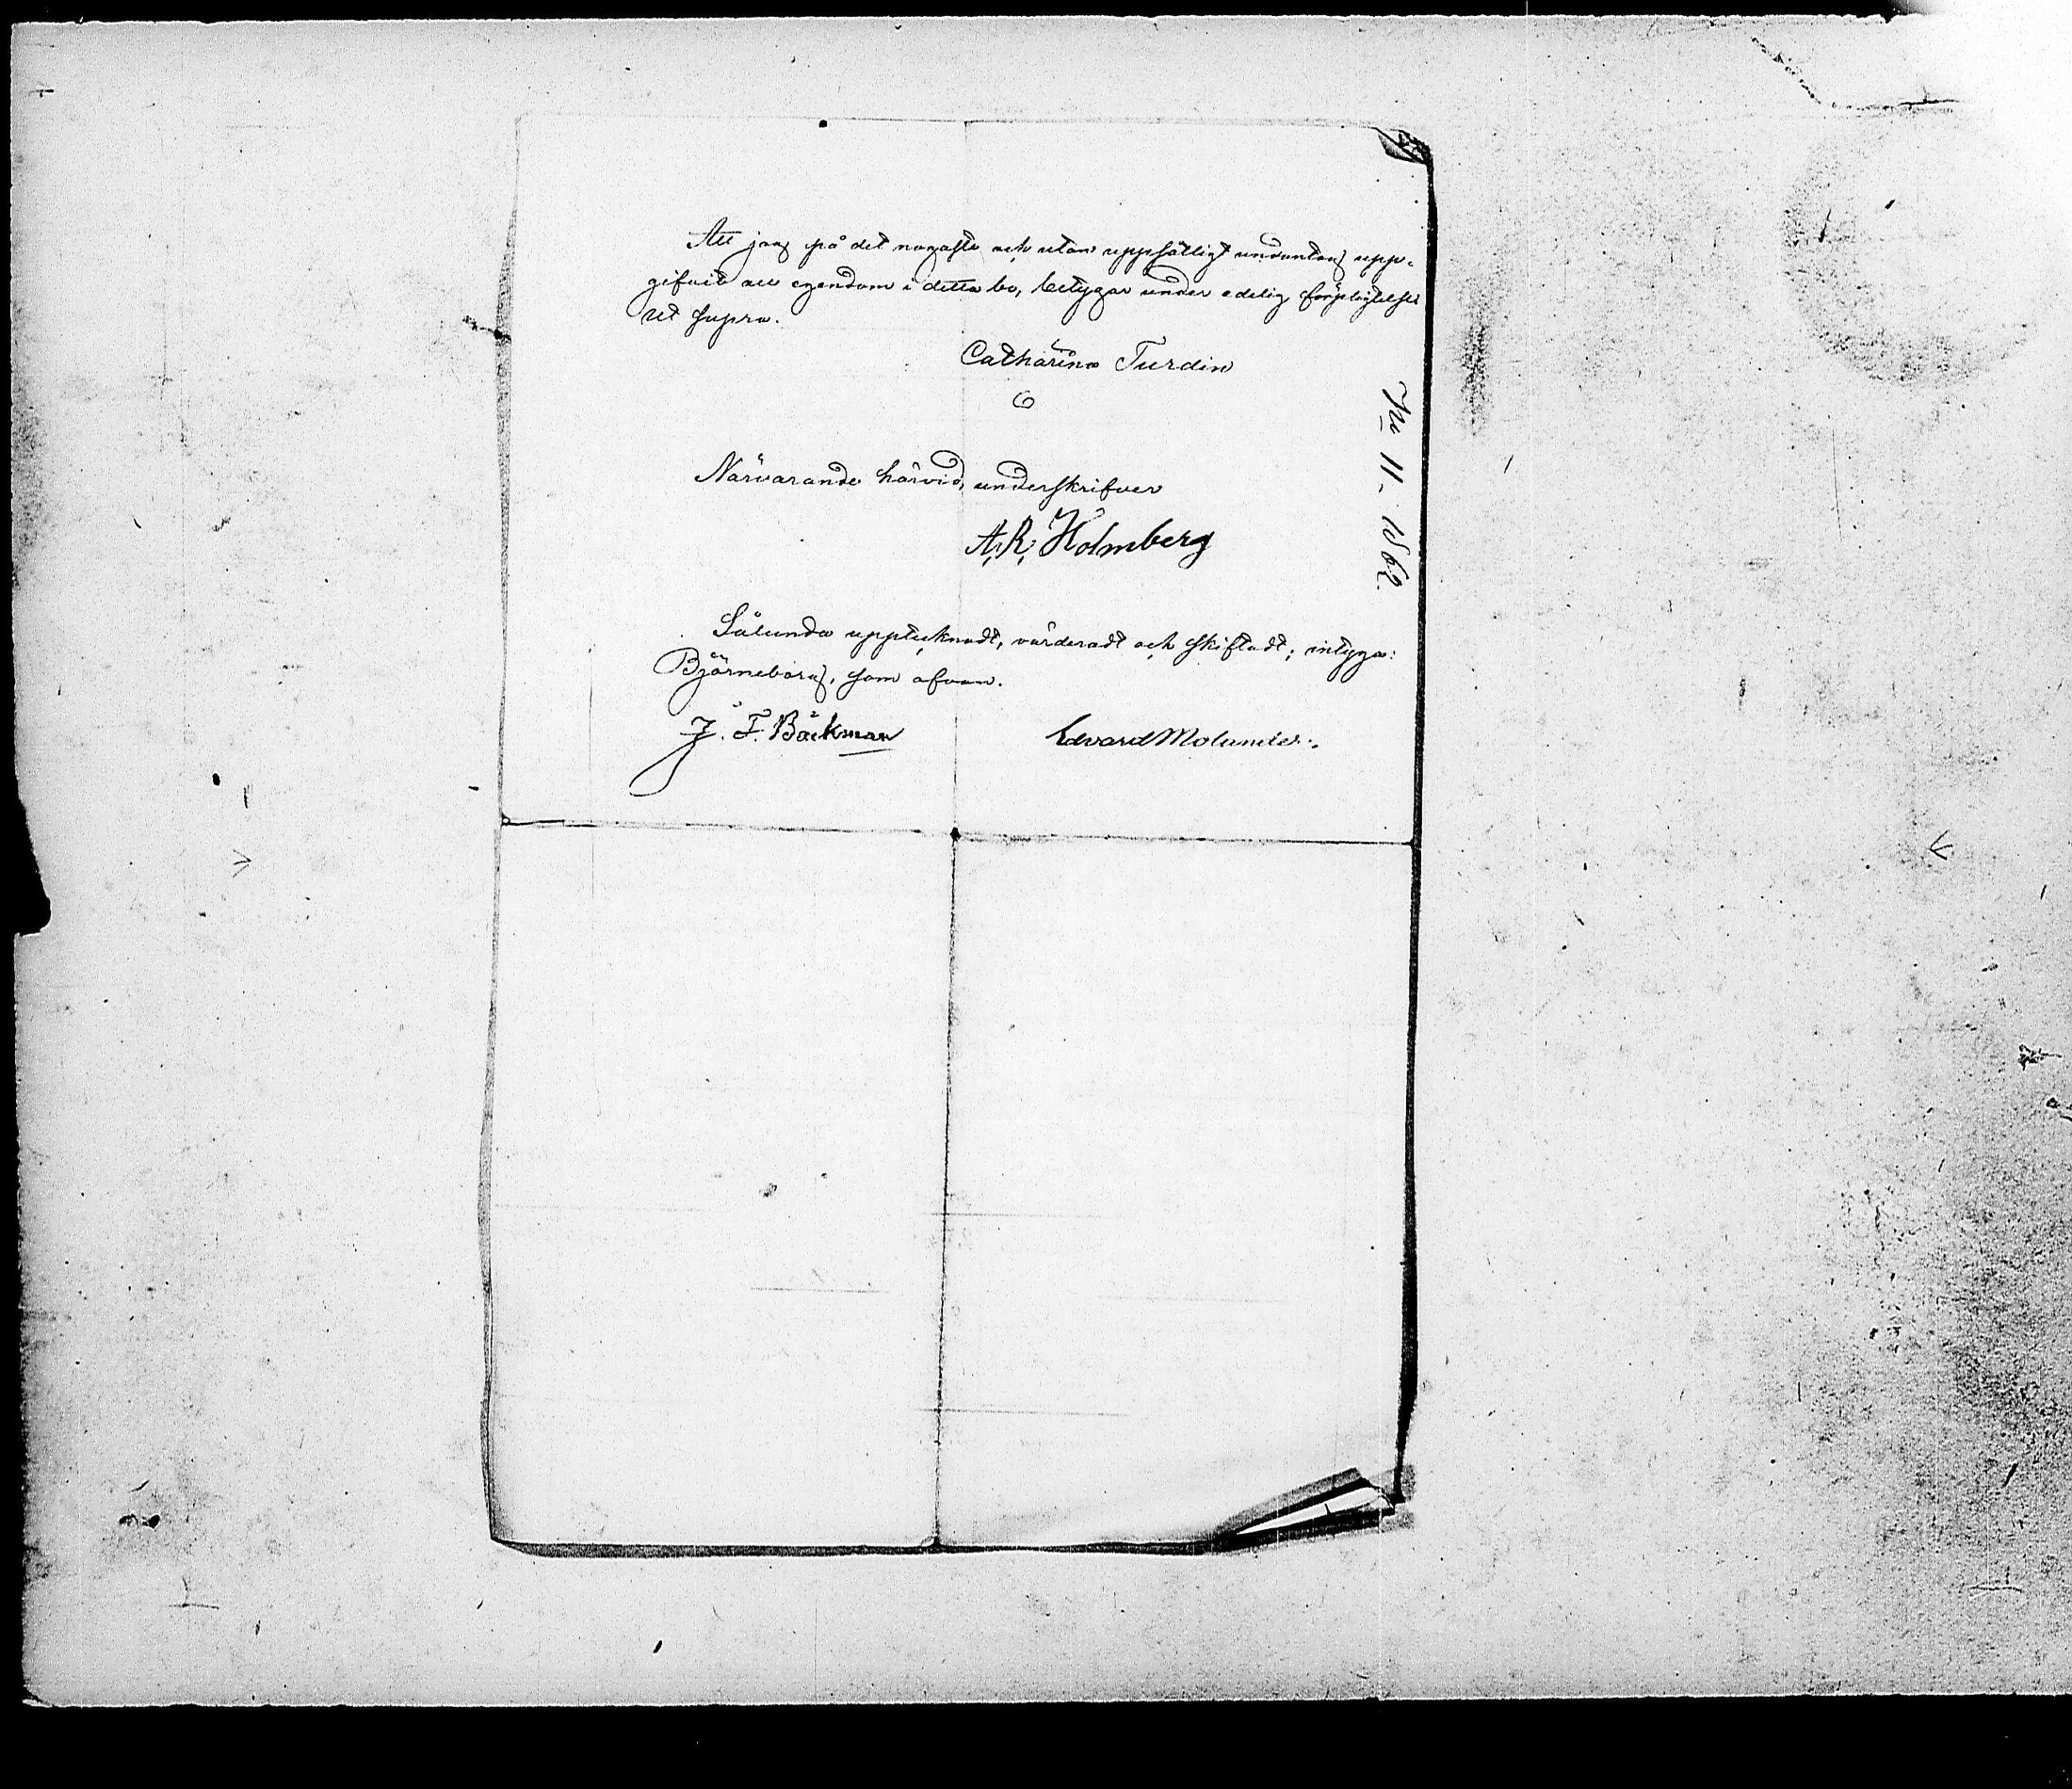 Att jag på det nogaste och utan uppsåtligt undantag upp-
gifvit all egendom i detta bo, betygar under edelig förpligtelse
ut supra.
Catharina Turdin
Närvarande härvid, underskrifver
A. R. Holmberg
Sålunda upptecknadt, värderadt och skiftadt; intyga:
Björneborg, som ofvan.
J. F. Bäckman Edvard Molander.
No 11. 1862.